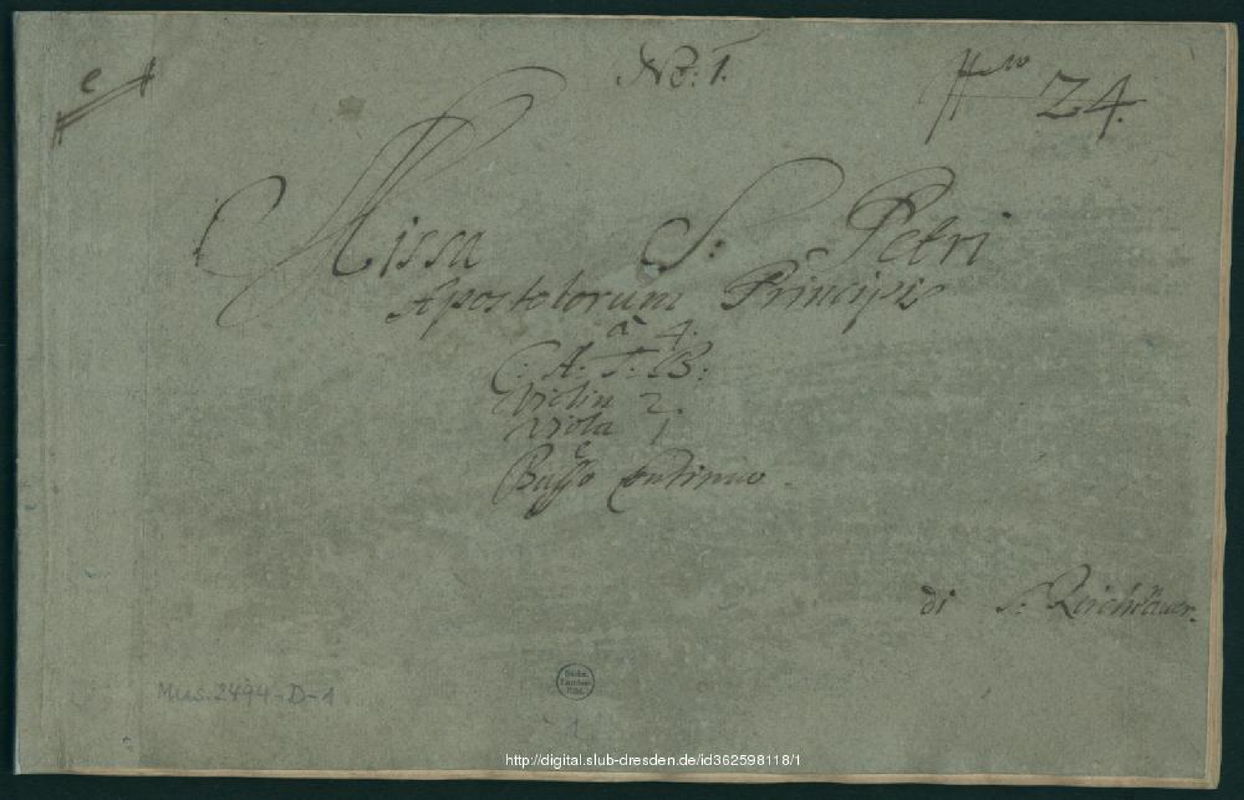 No: 1.
24.
Missa S: Petri
Apostolorum Principis
a 4.
C: A: T: B:
Violin 2.
Viola 1
e
Basso Continuo.
di S: Reichenauer.
Mus. 2494-D-1
Sächs.
Landes-
Bibl.
1
http://digital.slub-dresden.de/id362598118/1